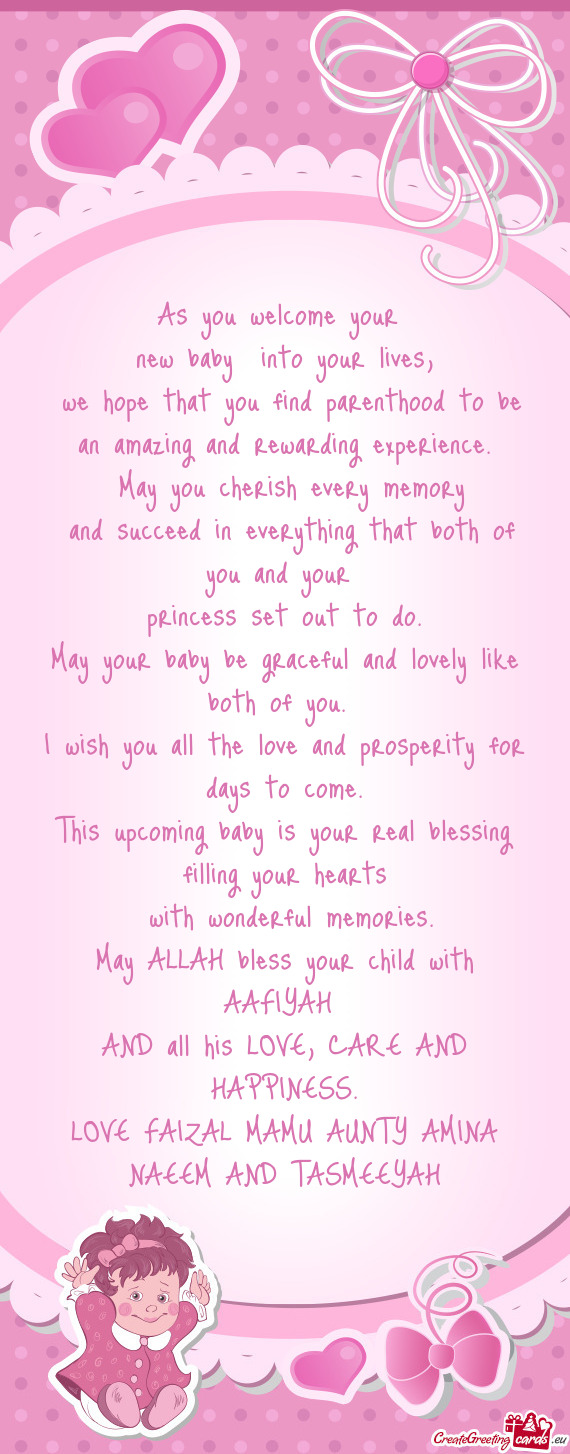 As you welcome your
new baby into your lives,
we hope that you find parenthood to be
an amazing and rewarding experience.
May you cherish every memory
and succeed in everything that both of
you and your
princess set out to do.
May your baby be graceful and lovely like
both of you.
I wish you all the love and prosperity for
days to come.
This upcoming baby is your real blessing
filling your hearts
with wonderful memories.
May ALLAH bless your child with
AAFIYAH
AND all his LOVE, CARE AND
HAPPINESS.
LOVE FAIZAL MAMU AUNTY AMINA
NAEEM AND TASMEEYAH
CreateGreetingcards.eu